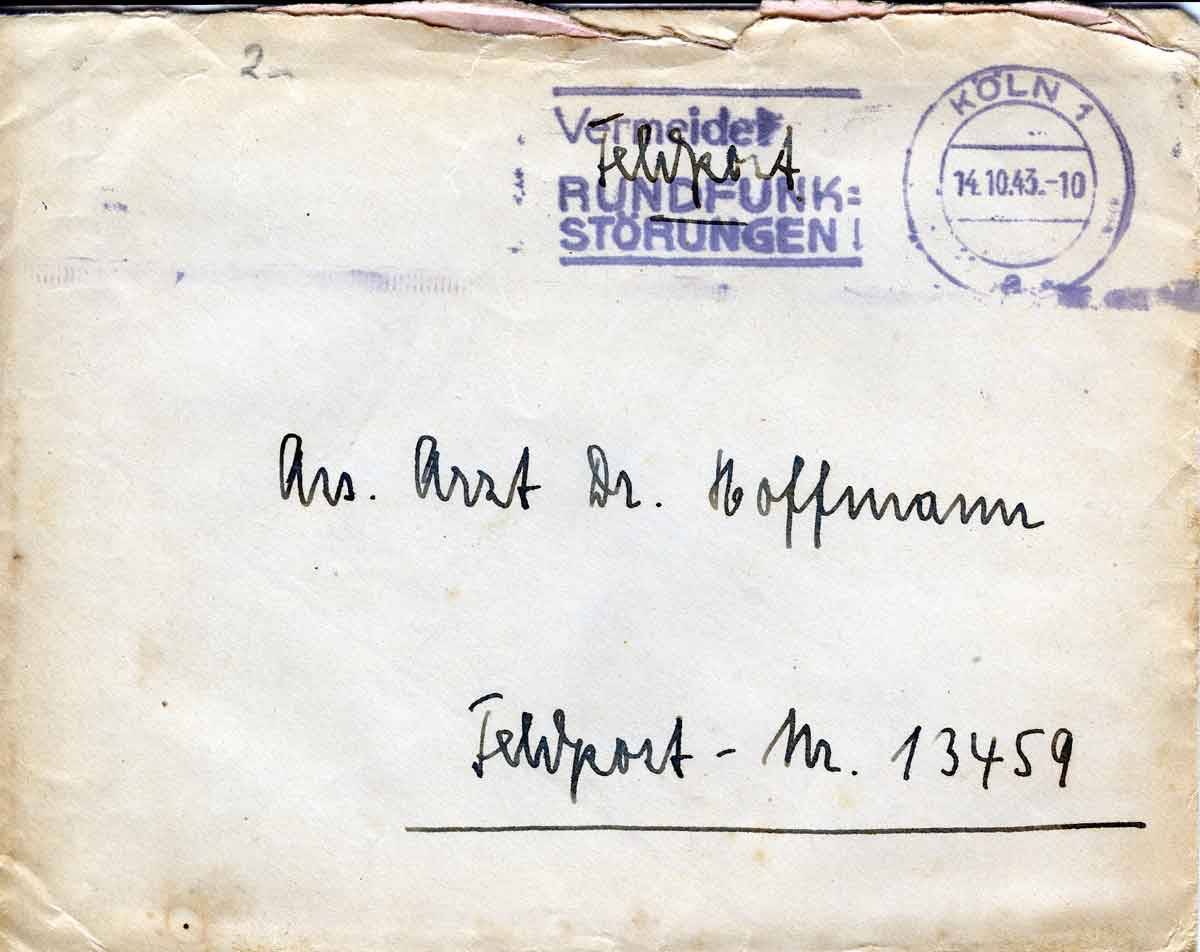 2.
Vermeidet
Feldpost
RUNDFUNK=
STÖRUNGEN!
KÖLN 1
14.10.43.-10
a
Ass. Arzt Dr. Hoffmann
Feldpost - Nr. 13459